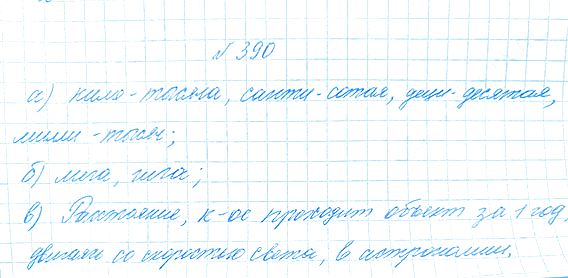 № 390
а) кило - тысяча, санти - сотая, деци - десятая,
милли - тысяч;
б) мега, гига;
в) Расстояние, к-ое проходит объект за 1 год,
двигаясь со скоростью света, в астрономии.